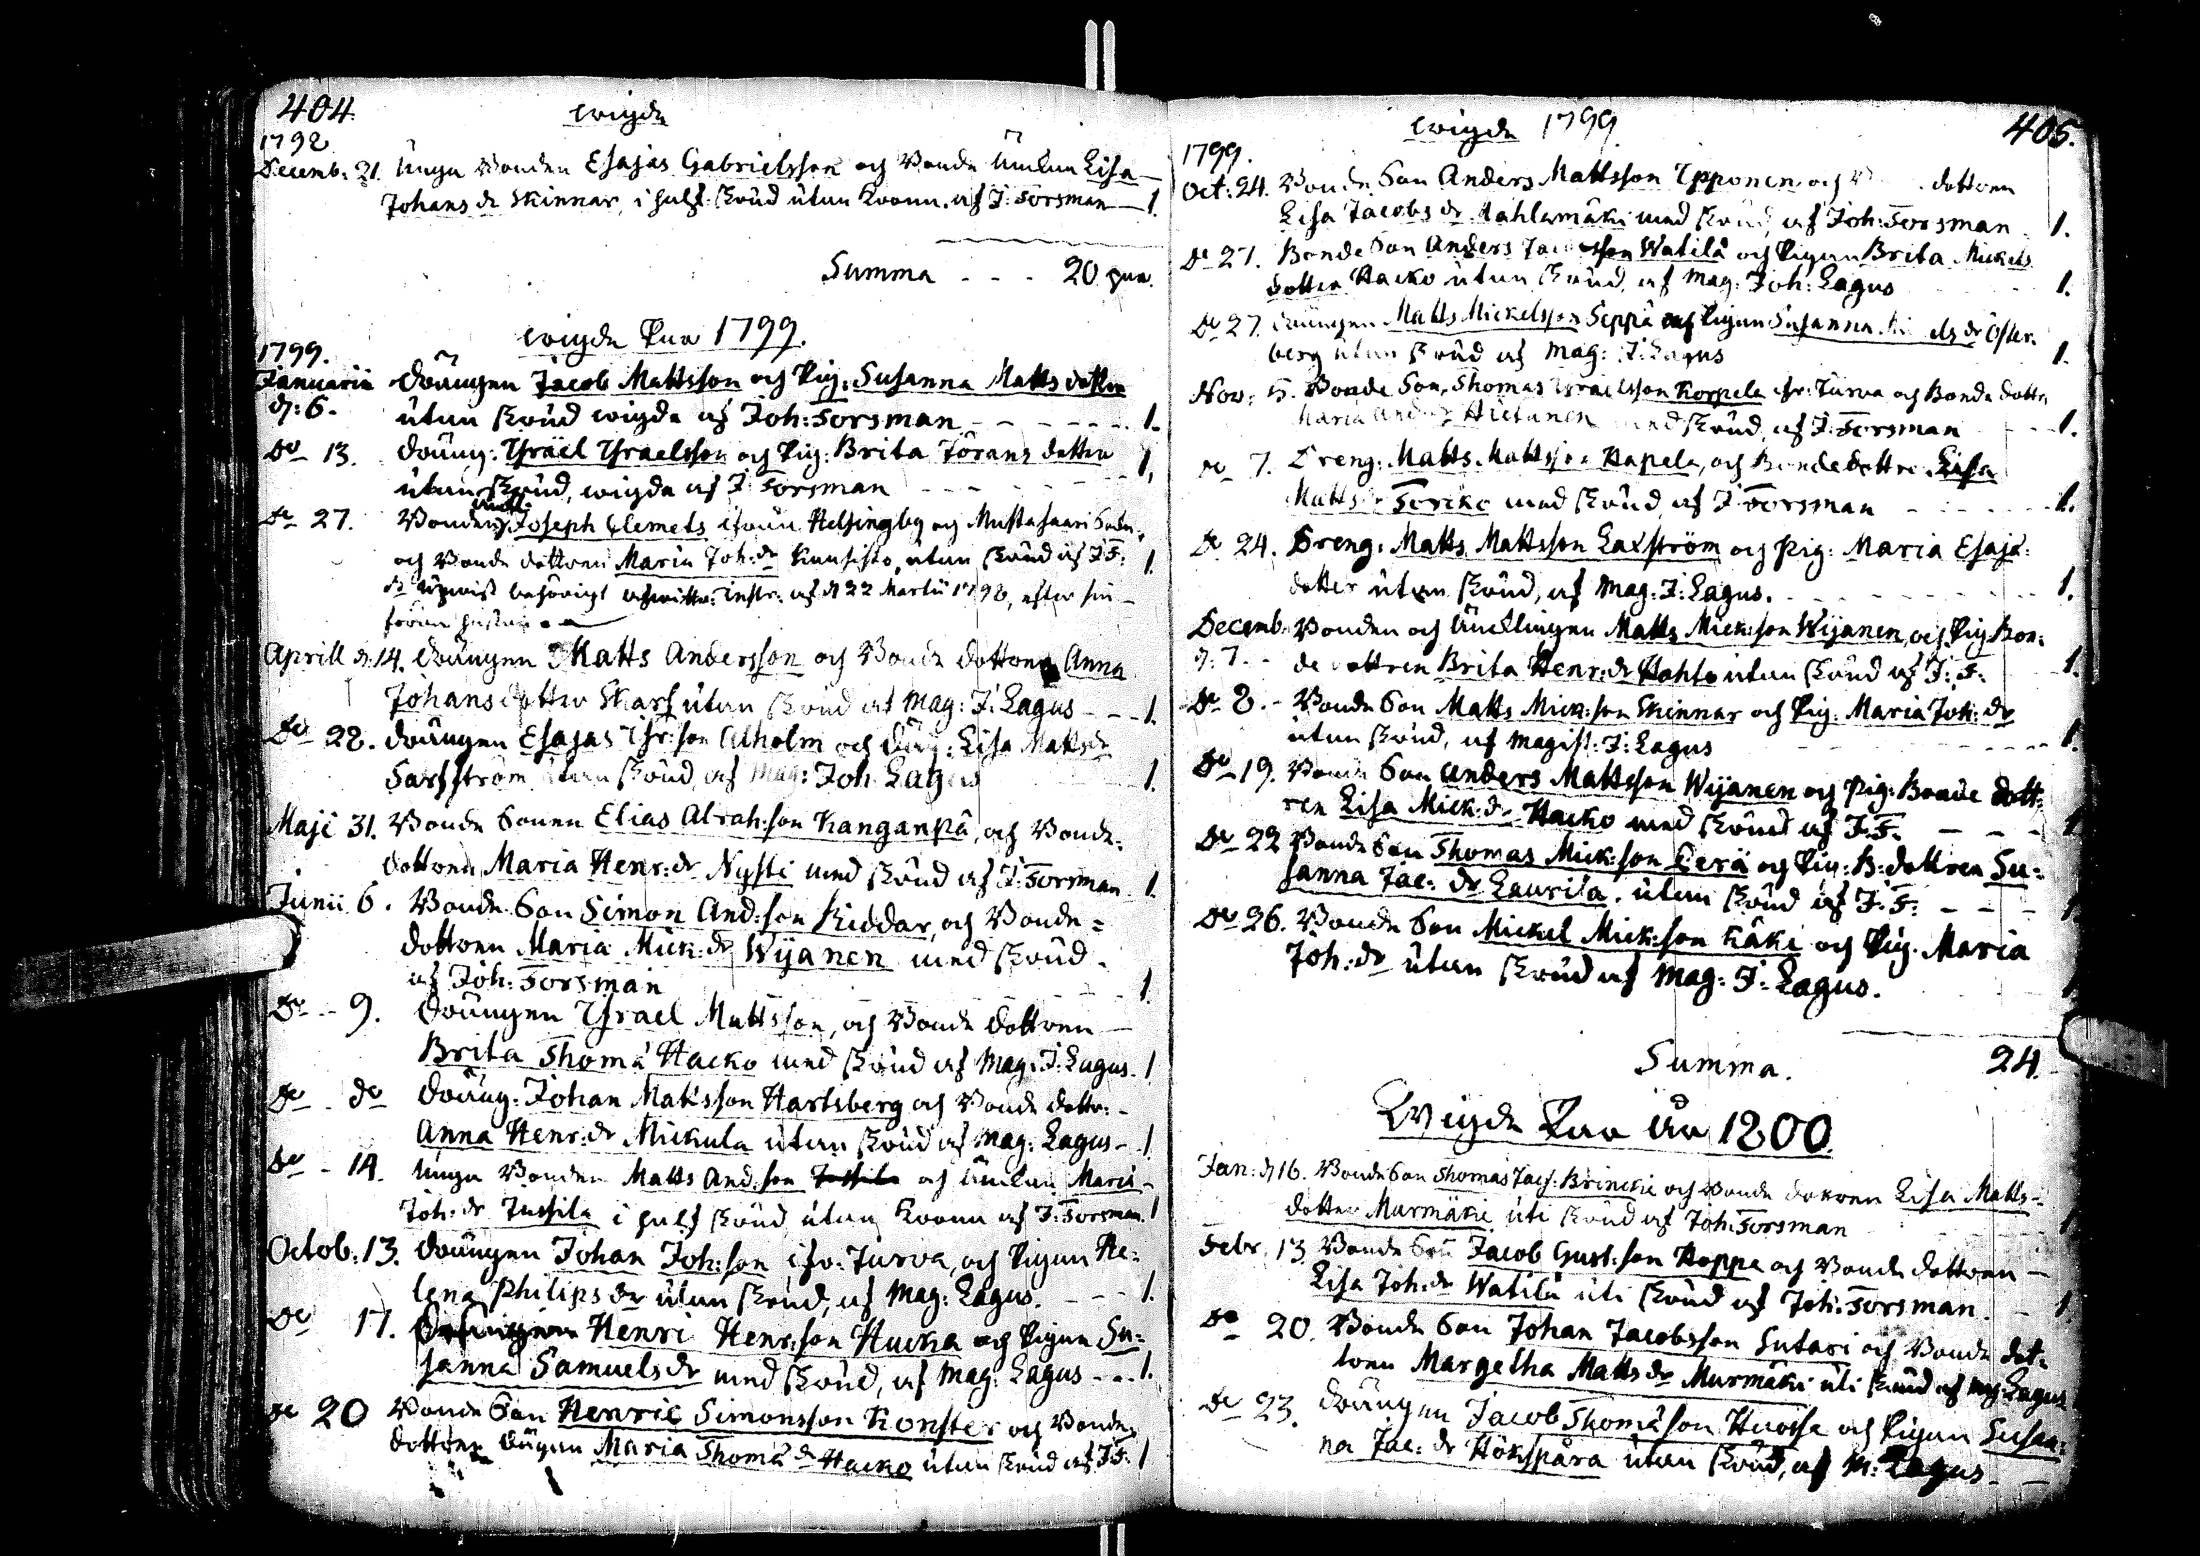 404.
wigde
1798
Decemb: 21. Unga Bonden Esajas Gabrielsson och Bonde Änkan Lisa
Johans dr Skinnar, i half skrud utan krona. af J: Forsman 1.
Summa - - - 20 par.
wigde Par 1799.
1799.
Januarii Drängen Jacob Mattsson och Pig: Susanna Matts dotter
d: 6. utan skrud wigde af Joh: Forsman - - - 1.
Do 13. Dräng: Israël Israelsson och Pig: Brita Jörans dotter 1.
utan skrud, wigda af J: Forsman
Do 27. Bonden Joseph Clemets ifrån Helsingby och Mustasaari Sokn,
och Bonde dottren Maria Joh: dr Kunsisto, utan skrud af J F: 1.
af d 22 Martii 1798, efter sin
Aprill d. 14. Drängen Matts Andersson och Bonde dottren Anna
Johans dotter Skarf utan skrud af Mag: J: Lagus - - 1.
Do 28. Drängen Esajas Isr:son Alholm och Pig: Lisa Matts dr
Sarfström utan skrud af Mag: Joh: Lagus 1.
Maji 31. Bonde Sonen Elias Abrah:son Kanganpä, och Bonde
dottren Maria Henr: dr Nysti med skrud af J: Forsman 1.
Junii 6. Bonde Son Simon And:son Riddar, och Bonde =
dottren Maria Mick: dr Wijanen med skrud
af Joh: Forsman 1.
Do - 9. Drängen Israel Mattsson, och Bonde dottren
Brita Thomæ Hacko med skrud af Mag: J: Lagus. 1
Do do Dräng: Johan Matsson Hartsberg och Bonde dottr:
Anna Henr: dr Mickula utan skrud af Mag: Lagus - 1
Do - 14. Unga Bonden Matts And:son och Änkan Maria
Joh: dr Jussila i half skrud utan krona af J: Forsman. 1
Octob: 13. Drängen Johan Joh:son, ifr: Jurva, och Pigan He:
lena Philips dr utan skrud, af Mag: Lagus. - - - 1.
Do 17. Henri Henr:son Hucka och Pigan Su=
sanna Samuels dr med skrud, af Mag: Lagus - - 1.
Do 20 Bonde Son Henric Simonsson Konster och Bonde
dottren Pigan Maria Thomæ dr Hacko utan skrud af J F: 1
wigde 1799.
405.
1799.
Oct: 24. Bonde Son Anders Mattsson Ypponen och dottren
Lisa Jacobs dr Kahlamäki med skrud, af Joh: Forsman 1.
Do 27. Bonde Son Anders Jac son Watilå och Pigan Brita Mickels
dotter Hacko utan skrud, af Mag: Joh: Lagus 1.
Do 27. Drängen Matts Mickelsson Seppä och Pigan Susanna dr Öster=
berg utan skrud af Mag: J: Lagus 1.
Nov: 5. Bonde Son, Thomas Israelsson Korpela ifr: Jurva och Bonde dottr
Maria Hietanen med skrud, af J: Forsman 1.
Do 7. Dreng: Matts Mattsson Kapela, och Bonde dottre Lisa
Matts dr med skrud, af J: Forsman 1.
Do 24. Dreng: Matts Mattsson Laxström och Pig: Maria Esaja:
dotter utan skrud, af Mag: J: Lagus. - - - 1.
Decemb: Bonden och Äncklingen Matts Mick:son Wijanen, och Pig Bon:
d: 7. - de dottren Brita Henr: dr Hohto utan skrud af J: F: 1.
Do 8. - Bonde Son Matts Mick:son Skinnar och Pig: Maria Joh: dr
utan skrud, af Magist: J: Lagus 1.
Do 19. Bonde Son Anders Mattsson Wijanen och Pig: Bonde dott=
ren Lisa Mick: dr Hacko med skrud af J: F: - - - 1
Do 22 Bonde Son Thomas Mick:son Perä och Pig: B: dottren Su=
sanna Jac: dr Laurila, utan skrud af J: F: - - - 1
Do 26. Bonde Son Mickel Mick:son Käki och Pig. Maria
Joh: dr utan skrud af Mag: J: Lagus. 1
Summa. 24.
Wigde Par År 1800.
Jan: d 16. Bonde Son Thomas Jac: Brinckie och Bonde dottren Lisa Matts=
dotter Murmäki uti skrud af Joh: Forsman 1
Febr. 13 Bonde Son Jacob Gust:son Hoppa och Bonde dottren -
Lisa Joh: dr Watilå uti skrud af Joh: Forsman. - 1.
Do 20. Bonde Son Johan Jacobsson Sutari och Bonde dot=
tren Margetha Matts dr Murmäki uti skrud af Mag: Lagus
Do 23. Drängen Jacob Thomæson Huossa och Pigan Susan=
na Jac: dr Hökspåra utan skrud, af M: Lagus -